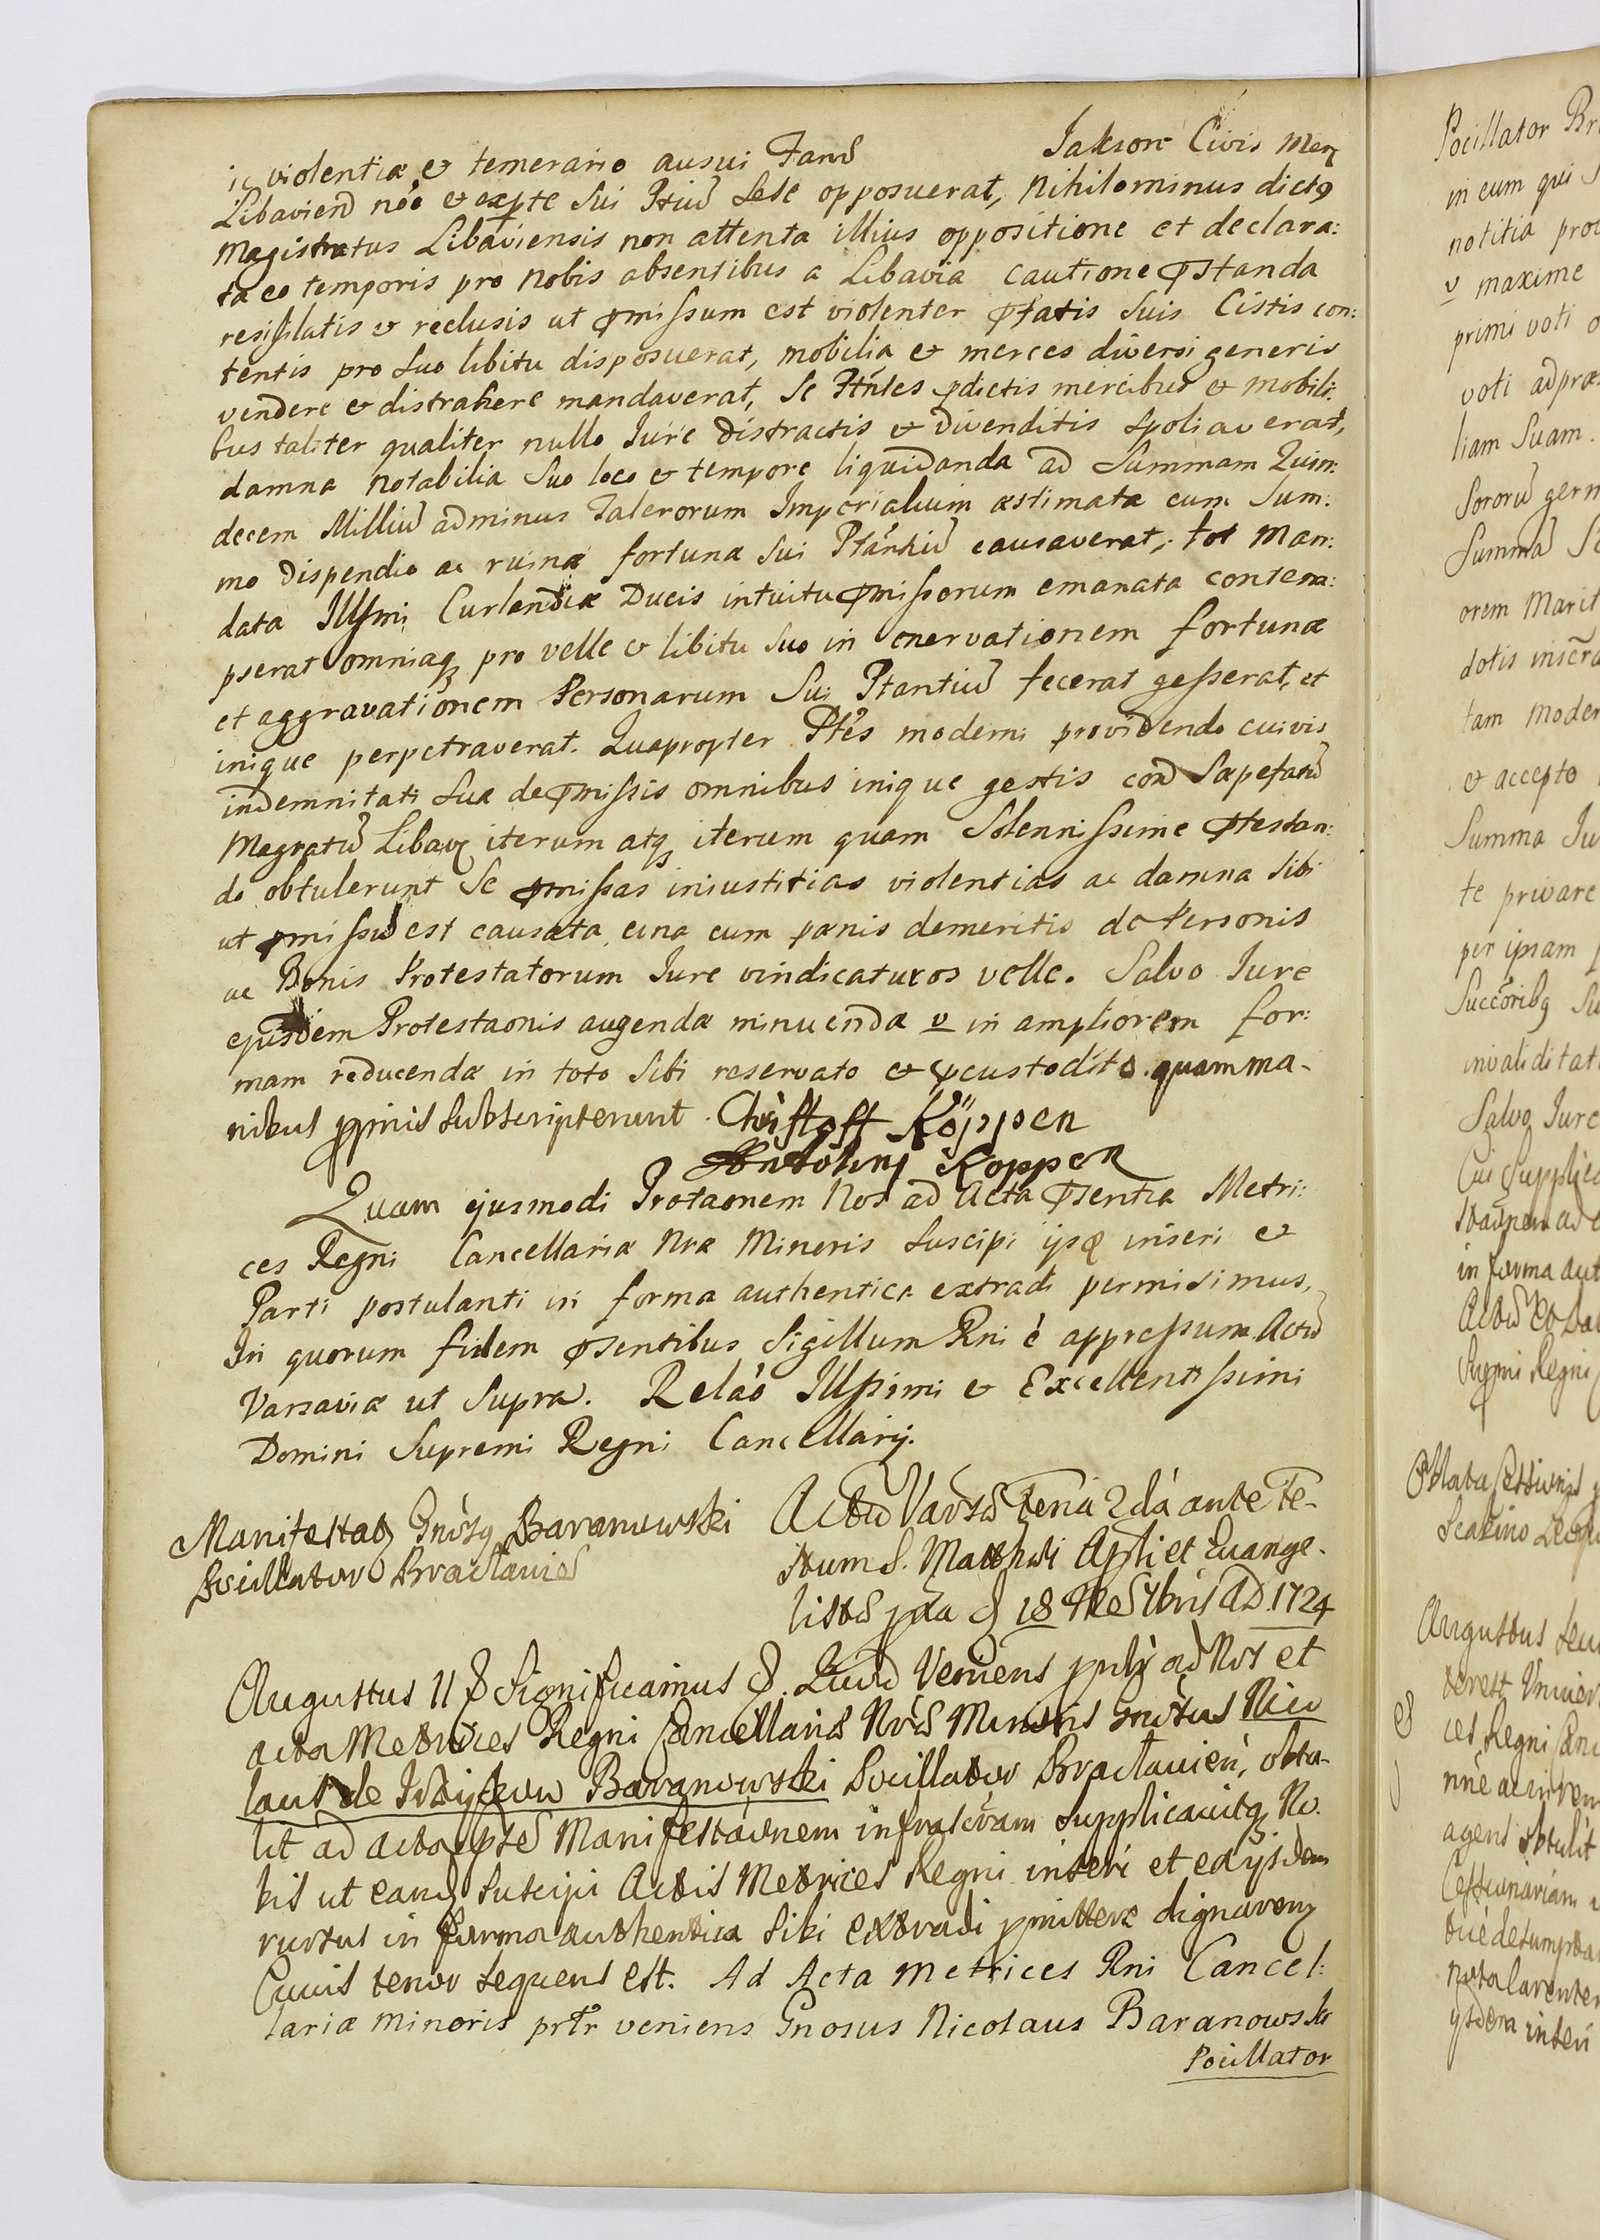 ic violentiæ & temerario ausui Fand Jakson Civis Merc
Libaviens noe & expte sui Ptiu sese opposuerat, nihilominus dictq
Magistratus Libaviensis non attenta illius oppositione et declara:
ta eo temporis pro nobis absentibus a Libavia cautione pstanda
resisilatis & reclusis ut pmissum est violenter pfatis suis Cistis con:
tentis pro suo libitu disposuerat, mobilia & merces diversi generis
vendere & distrahere mandaverat, se Ptntes pdictis mercibus & mobili:
bus taliter qualiter nullo Iure distractis & divenditis spoliaverat,
damna notabilia suo loco & tempore liquidanda ad summam Quin:
decem Milliu adminus Talerorum Imperialium æstimata cum sum:
mo dispendio ac ruina fortunæ sui Ptantiu causaverat, tot Man:
data Illsmi Curlandiæ Ducis intuitu pmissorum emanata contem:
pserat omniaq pro velle & libitu suo in enervationem fortunæ
et aggravationem Personarum sui Ptantiu fecerat gesserat, et
inique perpetraverat. Quapropter Ptes moderni providendo cuivis
indemnitati suæ de pmissis omnibus inique gestis con sæpefatu
Magratu Libav iterum atq iterum quam solennissime ptestan:
do obtulerunt se pmissas iniustitias violentias ac damna sibi
ut pmissu est causata una cum pænis demeritis de Personis
ac Bonis Protestatorum Iure vindicaturos velle. Salvo Iure
ejusdem Protestaonis augendæ minuendæ v in ampliorem for:
mam reducendæ in toto sibi reservato & pcustodito. quam ma-
nibus ppriis subscripserunt. Christoff Köppen
Anthony Koppen
Quam ejusmodi Protaonem Nos ad Acta psentia Metri:
ces Regni Cancellariæ Nræ Minoris suscipi ijsq inseri &
Parti postulanti in forma authentica extradi permisimus,
In quorum fidem psentibus Sigillum Rni è appressum Actu
Varsaviæ ut supra. Relao Illssimi & Excellentissimi
Domini Supremi Regni Cancellarij.
Manifestao Gnosq Baranowski
Pocillator Braclavies
Actu Varso feria 2da ante fe-
stum S. Matthæi Apli et Evange-
listæ pxa d 18 Mes 7bris AD 1724
Augustus II & Significamus &. Quod Veniens pnlr ad Nos et
acta Metrices Regni Cancellariæ Nræ Minoris Gnosus Nico
laus de Baranowski Pocillator Braclavien, obtu-
lit ad acta pste Manifestaonem infrascram supplicavitq No-
bis ut eand suscipi Actis Metrices Regni inseri et ex ijsdem
rursus in forma authentica sibi extradi pmittere dignarem
Cuius tenor sequens est. Ad Acta Metrices Rni Cancel:
lariæ minoris prlr veniens Gnosus Nicolaus Baranowski
Pocillator
Pocillator Br
in eum qui s
notitia prou
v maxime
primi voti
voti ad præ
liam suam.
Sororu germ
Summa
orem Marit
dotis inscra
tam moder
& accepto
Summa Iu
te privare
per ipsam
Succoribq su
invaliditat
Salvo Iure
Cui supplica
in forma aut
Regni
Augustus secu
terest Univers
ces Regni Canc
agens obtulit
Cessionariam
ijsdem inseri